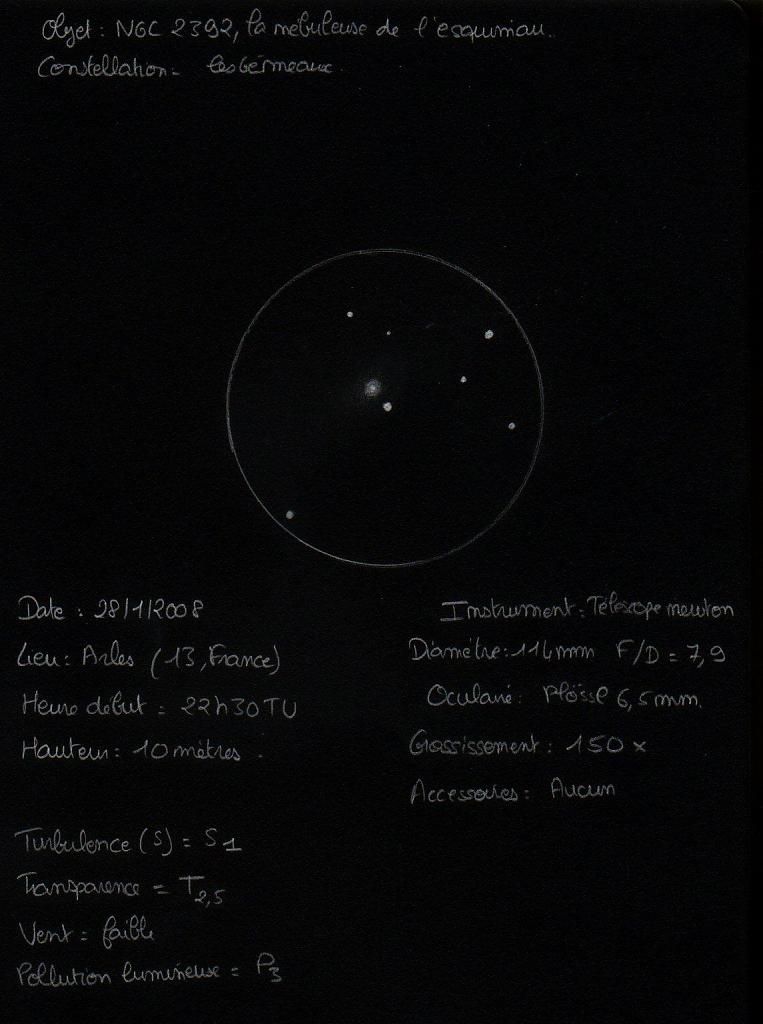 Objet : NGC 2392, la nébuleuse de l'esquimau.
Constellation = les Gémeaux.
Date : 28/1/2008
Lieu : Arles (13, France)
Heure début = 22h30TU
Hauteur : 10 mètres.
Turbulence (S) = S1
Transparence = T2,5
Vent = faible
Pollution lumineuse = P3
Instrument : Télescope newton
Diamètre : 114mm F/D = 7,9
Oculaire : Plössl 6,5mm.
Grossissement : 150 x
Accessoires : Aucun